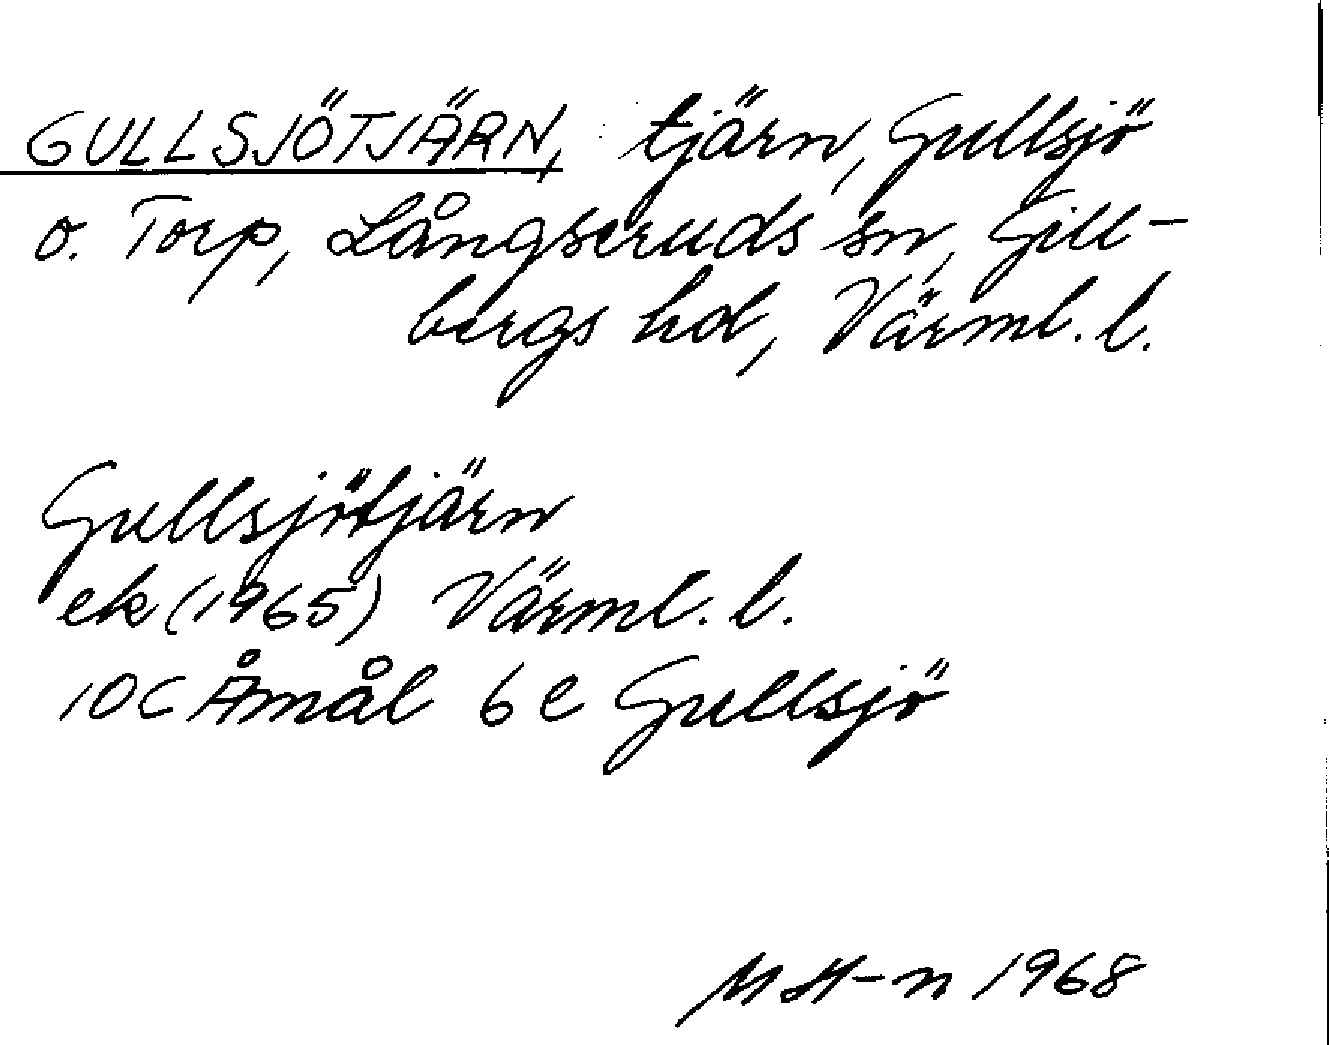 GULLSJÖTJÄRN, tjärn, Gullsjö
o. Torp, Långseruds sn, Gill-
bergs hd, Värml. l.
Gullsjötjärn
ek (1965) Värml. l.
10C Åmål 6e Gullsjö
MH-n 1968